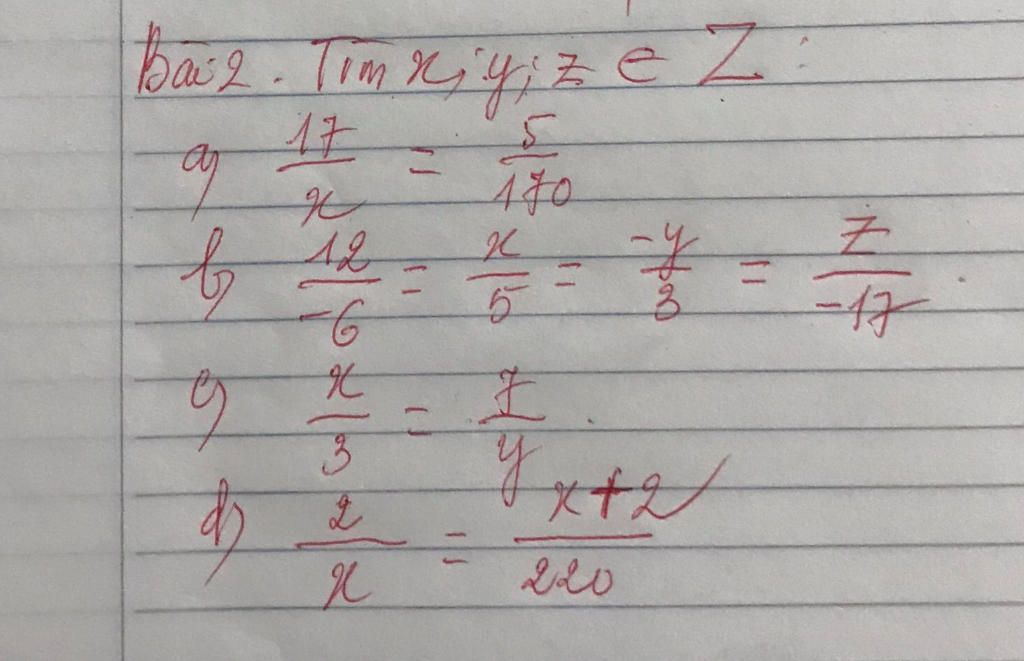 Bài 2. Tìm x; y; z ∈ Z:
a) 17/x = 5/170
b) 12/-6 = x/5 = -y/3 = z/-17.
c) x/3 = 7/y.
d) 2/x = x+2/220